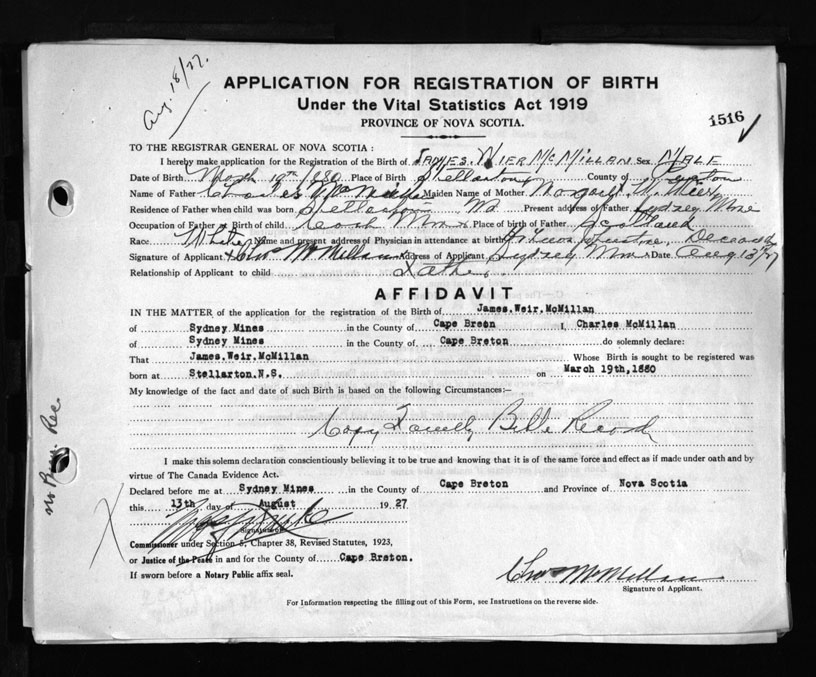 Aug. 18/27.
APPLICATION FOR REGISTRATION OF BIRTH
Under the Vital Statistics Act 1919
PROVINCE OF NOVA SCOTIA.
1516
TO THE REGISTRAR GENERAL OF NOVA SCOTIA :
I hereby make application for the Registration of the Birth of JAMES. WIER McMILLAN Sex MALE
Date of Birth March 19th 1880 Place of Birth Stellarton County of
Name of Father Charles McMillan Maiden Name of Mother Margaret
Residence of Father when child was born Stellarton Present address of Father Sydney Mines
Occupation of Father at Birth of child Coal Miner Place of birth of Father Scotland
Race. White Name and present address of Physician in attendance at birth Deceased
Signature of Applicant x Chas McMillan Address of Applicant Sydney Mines Date Aug 13/27
Relationship of Applicant to child Father
AFFIDAVIT
IN THE MATTER of the application for the registration of the Birth of James.Weir.McMillan
of Sydney Mines in the County of Cape Breon I, Charles McMillan
of Sydney Mines in the County of Cape Breton do solemnly declare:
That James.Weir.McMillan Whose Birth is sought to be registered was
born at Stellarton.N.S. on March 19th,1880
My knowledge of the fact and date of such Birth is based on the following Circumstances:–
Copy Family Bible Record
I make this solemn declaration conscientiously believing it to be true and knowing that it is of the same force and effect as if made under oath and by
virtue of The Canada Evidence Act.
Declared before me at Sydney Mines in the County of Cape Breton and Province of Nova Scotia
this 13th. day of August 1927
Signature
Commissioner under Section 5, Chapter 38, Revised Statutes, 1923,
or Justice of the Peace in and for the County of Cape Breton.
If sworn before a Notary Public affix seal.
Chas McMillan
Signature of Applicant.
For Information respecting the filling out of this Form, see Instructions on the reverse side.
No Rec.